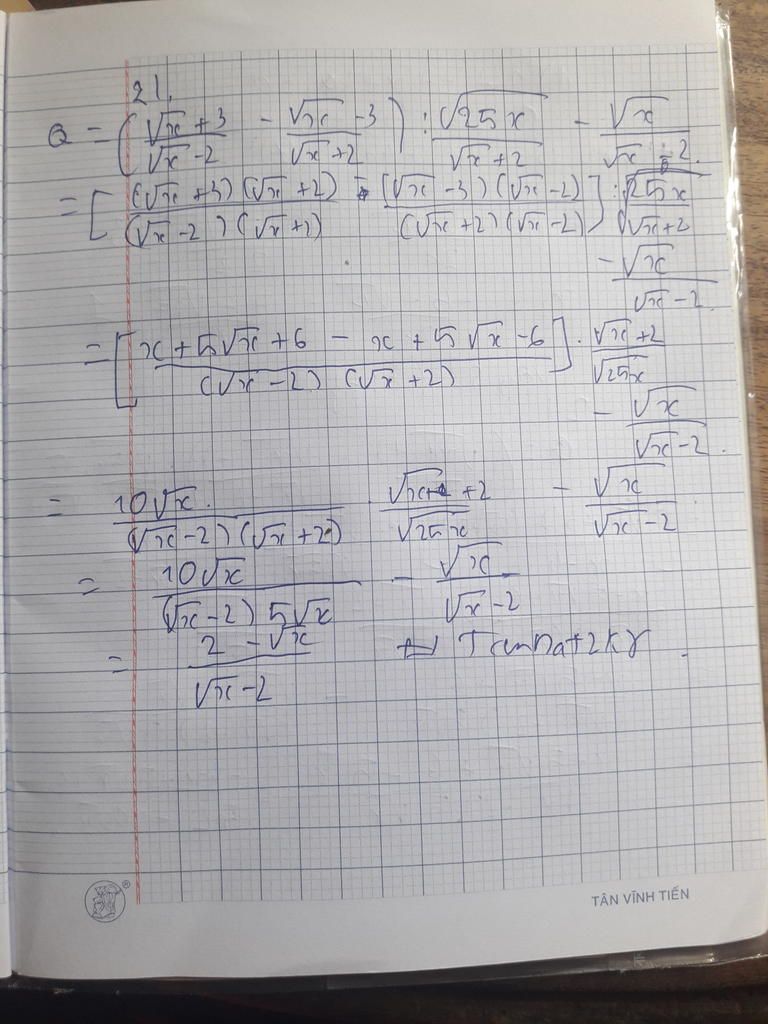 21.
Q = ( (√x + 3)/(√x - 2) - (√x - 3)/(√x + 2) ) : √25x/(√x + 2) - √x/(√x - 2).
= [ (√x + 3)(√x + 2)/(√x - 2)(√x + 2) - (√x - 3)(√x - 2)/(√x + 2)(√x - 2) ] : √25x/(√x + 2)
- √x/(√x - 2).
= [ (x + 5√x + 6 - x + 5√x - 6)/(√x - 2)(√x + 2) ] . (√x + 2)/√25x
- √x/(√x - 2).
= 10√x/(√x - 2)(√x + 2) . (√x + 2)/√25x - √x/(√x - 2)
= 10√x/(√x - 2)5√x - √x/(√x - 2)
= (2 - √x)/(√x - 2)
TÂN VĨNH TIẾN